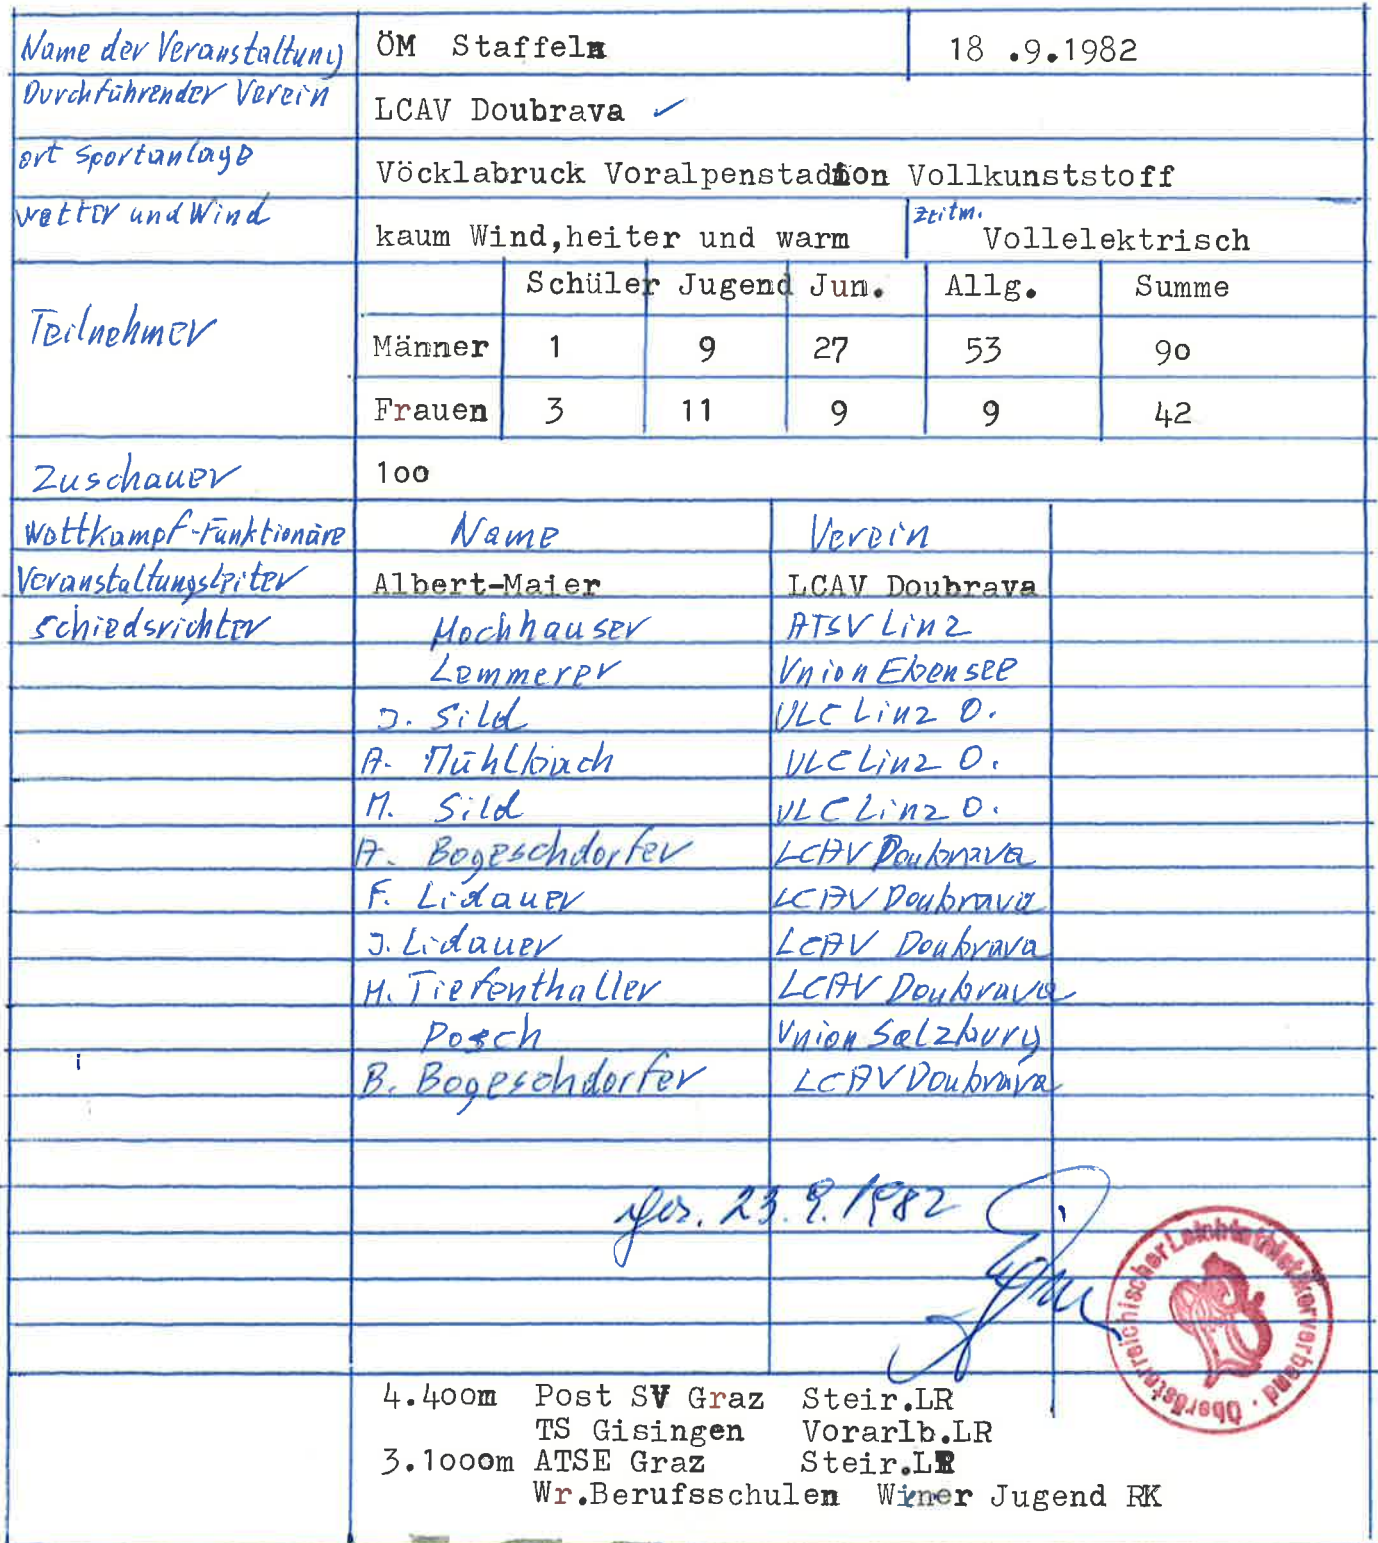 Name der Veranstaltung ÖM Staffeln 18 .9.1982
Durchführender Verein LCAV Doubrava ✓
ort Sportanlage Vöcklabruck Voralpenstadion Vollkunststoff
wetter und Wind kaum Wind,heiter und warm Zeitm. Vollelektrisch
Teilnehmer Schüler Jugend Jun. Allg. Summe
Männer 1 9 27 53 9o
Frauen 3 11 9 9 42
Zuschauer 1oo
Wettkampf-Funktionäre Name Verein
Veranstaltungsleiter Albert-Maier LCAV Doubrava
Schiedsrichter Hochhauser ATSV Linz
Lemmerer Union Ebensee
J. Sild ULC Linz O.
A. Mühlbach ULC Linz O.
M. Sild ULC Linz O.
A. Bogeschdorfer LCAV Doubrava
F. Lidauer LCAV Doubrava
J. Lidauer LCAV Doubrava
H. Tiefenthaller LCAV Doubrava
Posch Union Salzburg
B. Bogeschdorfer LCAV Doubrava
23.9.1982
Oberösterreichischer Leichtathletikverband
4.4oom Post SV Graz Steir.LR
TS Gisingen Vorarlb.LR
3.1ooom ATSE Graz Steir.LR
Wr.Berufsschulen Wiener Jugend RK